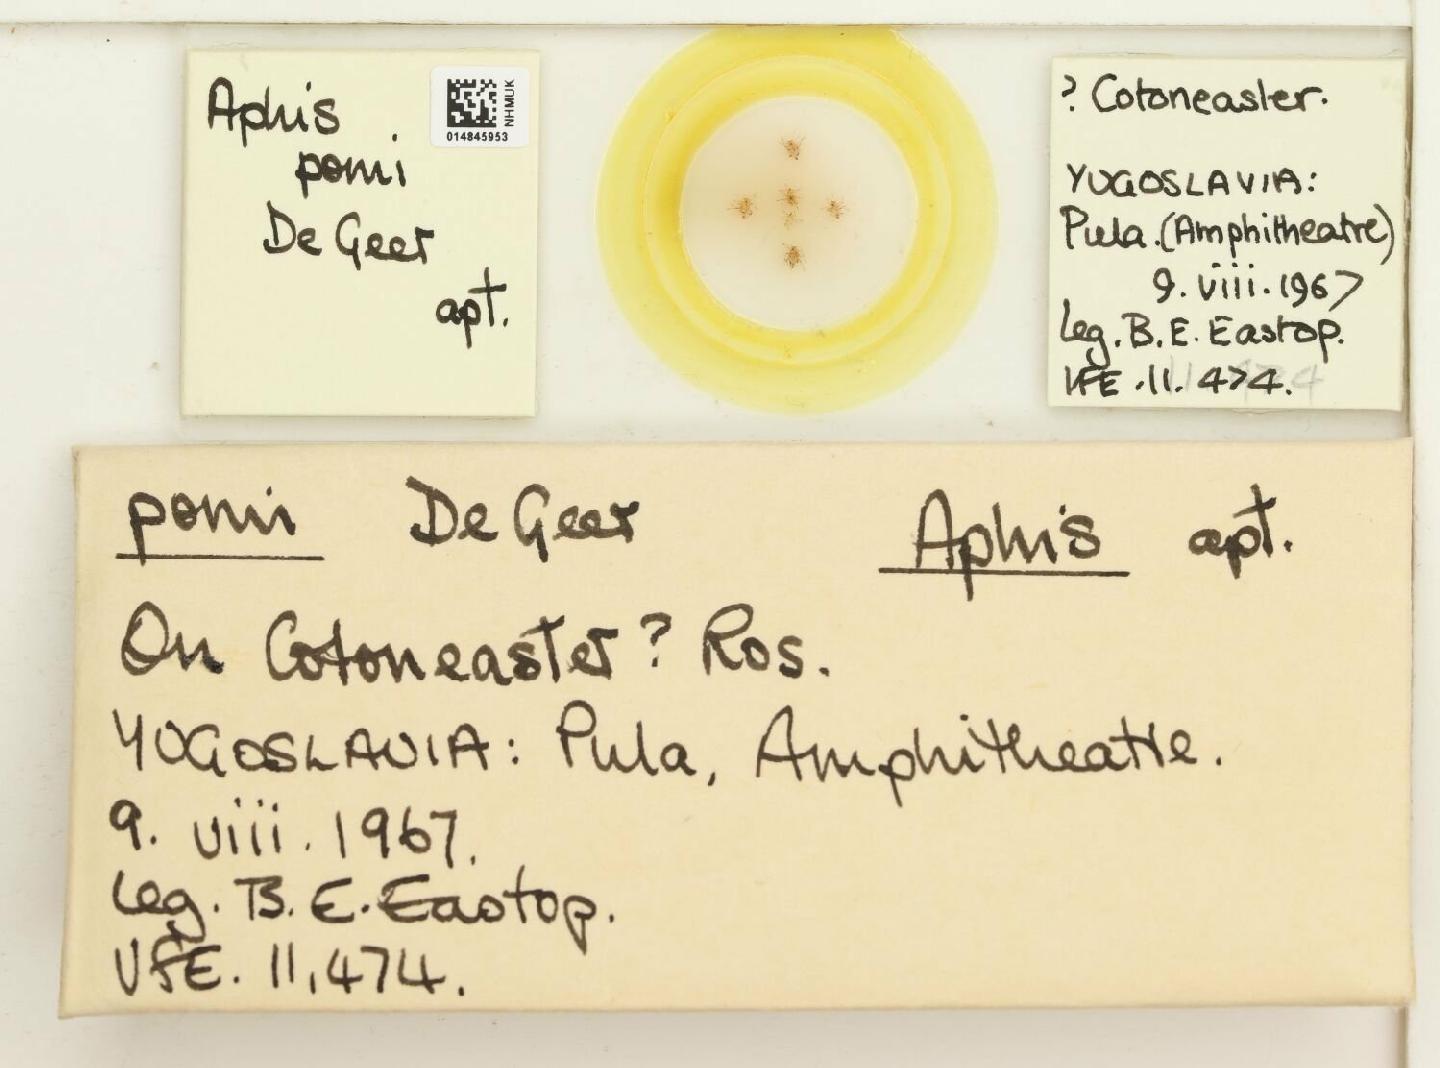 Aphis
pomi
De Geer
apt.
NHMUK
014845953
? Cotoneaster.
YUGOSLAVIA:
Pula. (Amphitheatre)
9. viii. 1967
Leg. B. E. Eastop.
VFE. 11. 474.
pomi De Geer Aphis apt.
On Cotoneaster? Ros.
YUGOSLAVIA: Pula, Amphitheatre.
9. viii. 1967.
Leg. B. E. Eastop.
VFE. 11,474.